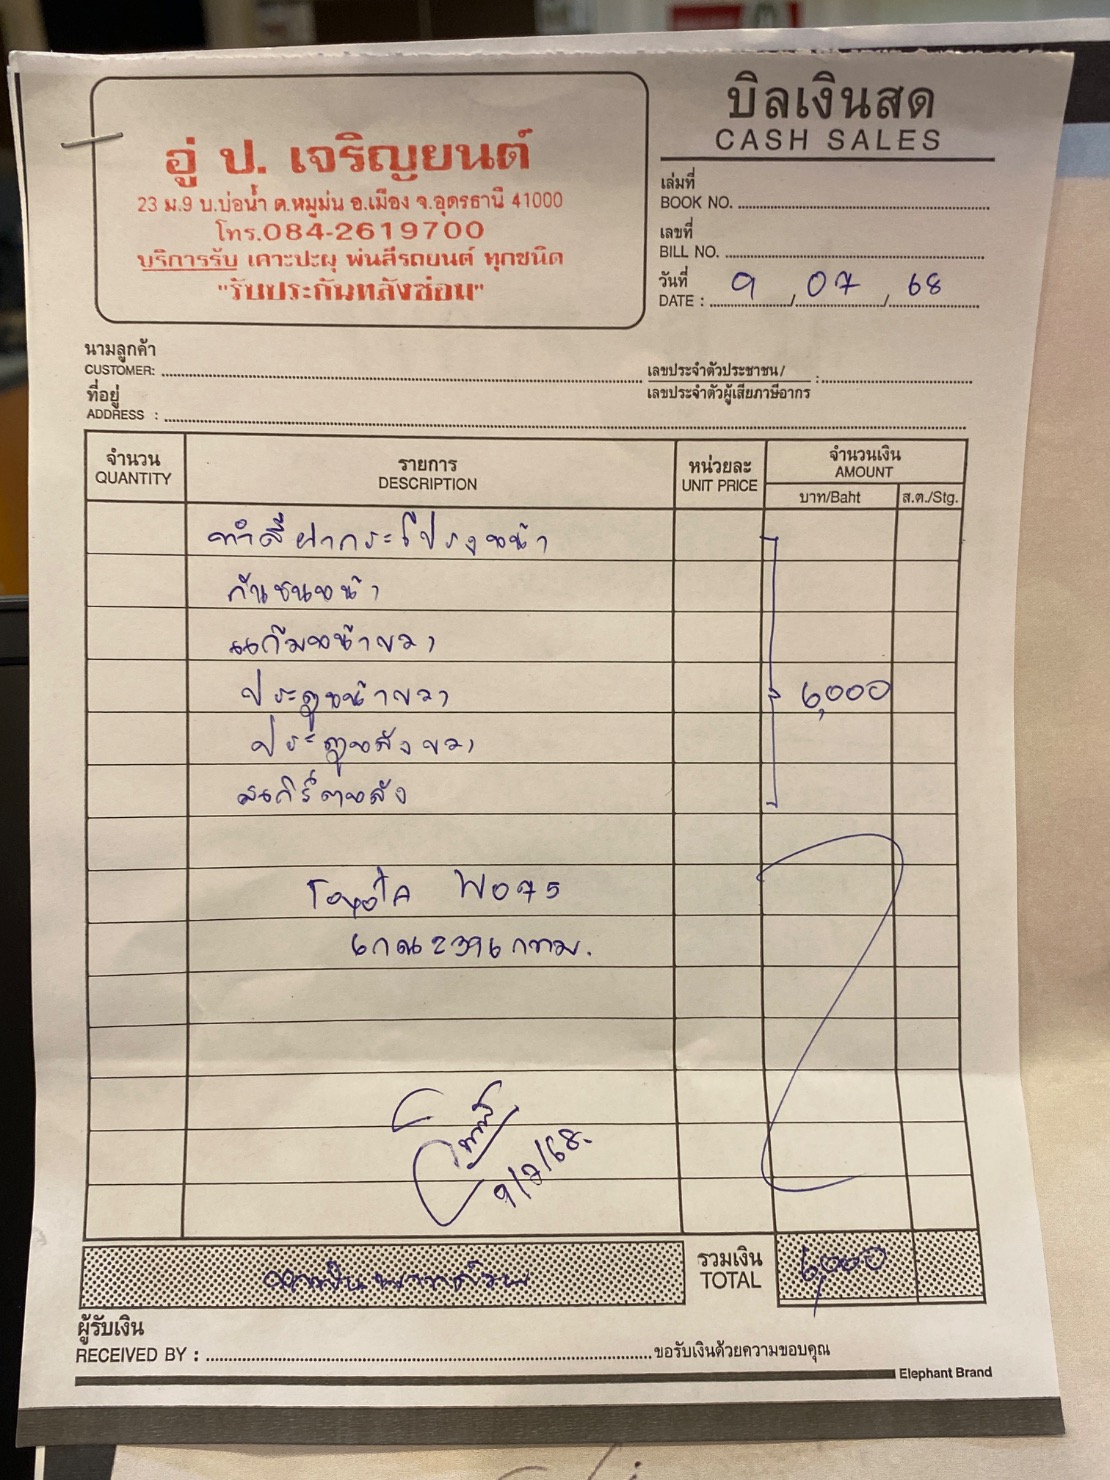 บิลเงินสด
CASH SALES
อู่ ป. เจริญยนต์
23 ม.9 บ.บ่อน้ำ ต.หมูม่น อ.เมือง จ.อุดรธานี 41000
โทร.084-2619700
บริการรับ เคาะปะผุ พ่นสีรถยนต์ ทุกชนิด
"รับประกันหลังซ่อม"
เล่มที่
BOOK NO.
เลขที่
BILL NO.
วันที่
DATE : 9 / 07 / 68
นามลูกค้า
CUSTOMER:
เลขประจำตัวประชาชน/
เลขประจำตัวผู้เสียภาษีอากร :
ที่อยู่
ADDRESS :
จำนวน รายการ หน่วยละ จำนวนเงิน
QUANTITY DESCRIPTION UNIT PRICE AMOUNT
บาท/Baht ส.ต./Stg.
ทำสีฝากระโปรงหน้า
กันชนหน้า
แก้มหน้าขวา
ประตูหน้าขวา 6,000
ประตูหลังขวา
TOYOTA
6กณ2396 กทม.
9/7/68.
รวมเงิน
TOTAL 6,000
ผู้รับเงิน
RECEIVED BY : ขอรับเงินด้วยความขอบคุณ
Elephant Brand